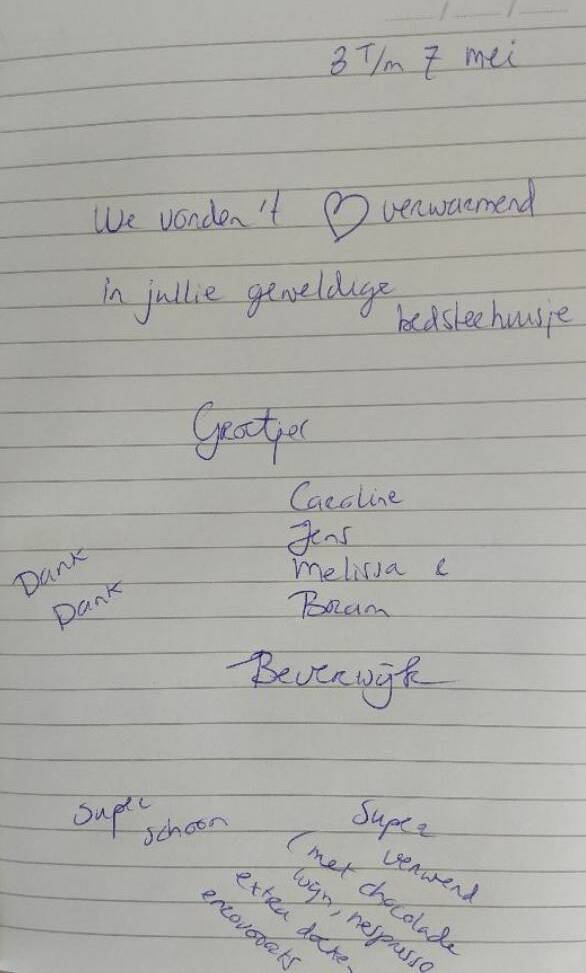 3 T/m 7 mei
We vonden 't ♡ verwarmend
in jullie geweldige
bedsteehuisje
Groetjes
Caroline
Jens
Melissa &
Bram
Dank
Dank
Beverwijk
Super
schoon
Super
verwend
(met chocolade
wijn, nespresso
extra